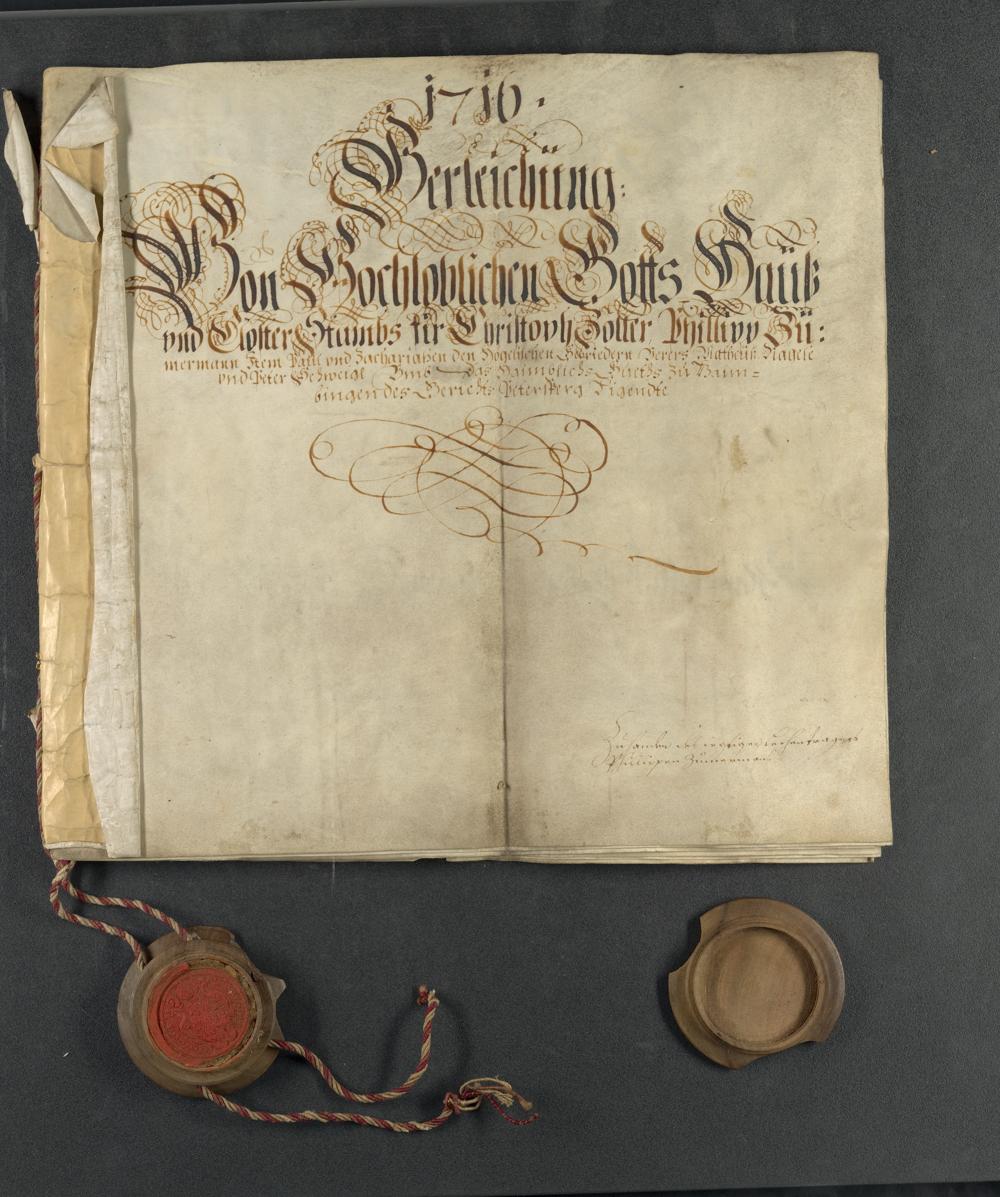 1716.
Verleichüng:
Von Hochloblichen Gotts Hauß
vnd Closter Stambs für Christoph Zoller, Phillipp Zü:
mermann Item Paul vnd Zachariaßen den Gebriedern Matheuß Nagele
vnd Peter Schweigl Vmb das Gueths Zu Haim=
bingen des Gerichts Petersperg
Zuhanden des
Phillipen Zimerman